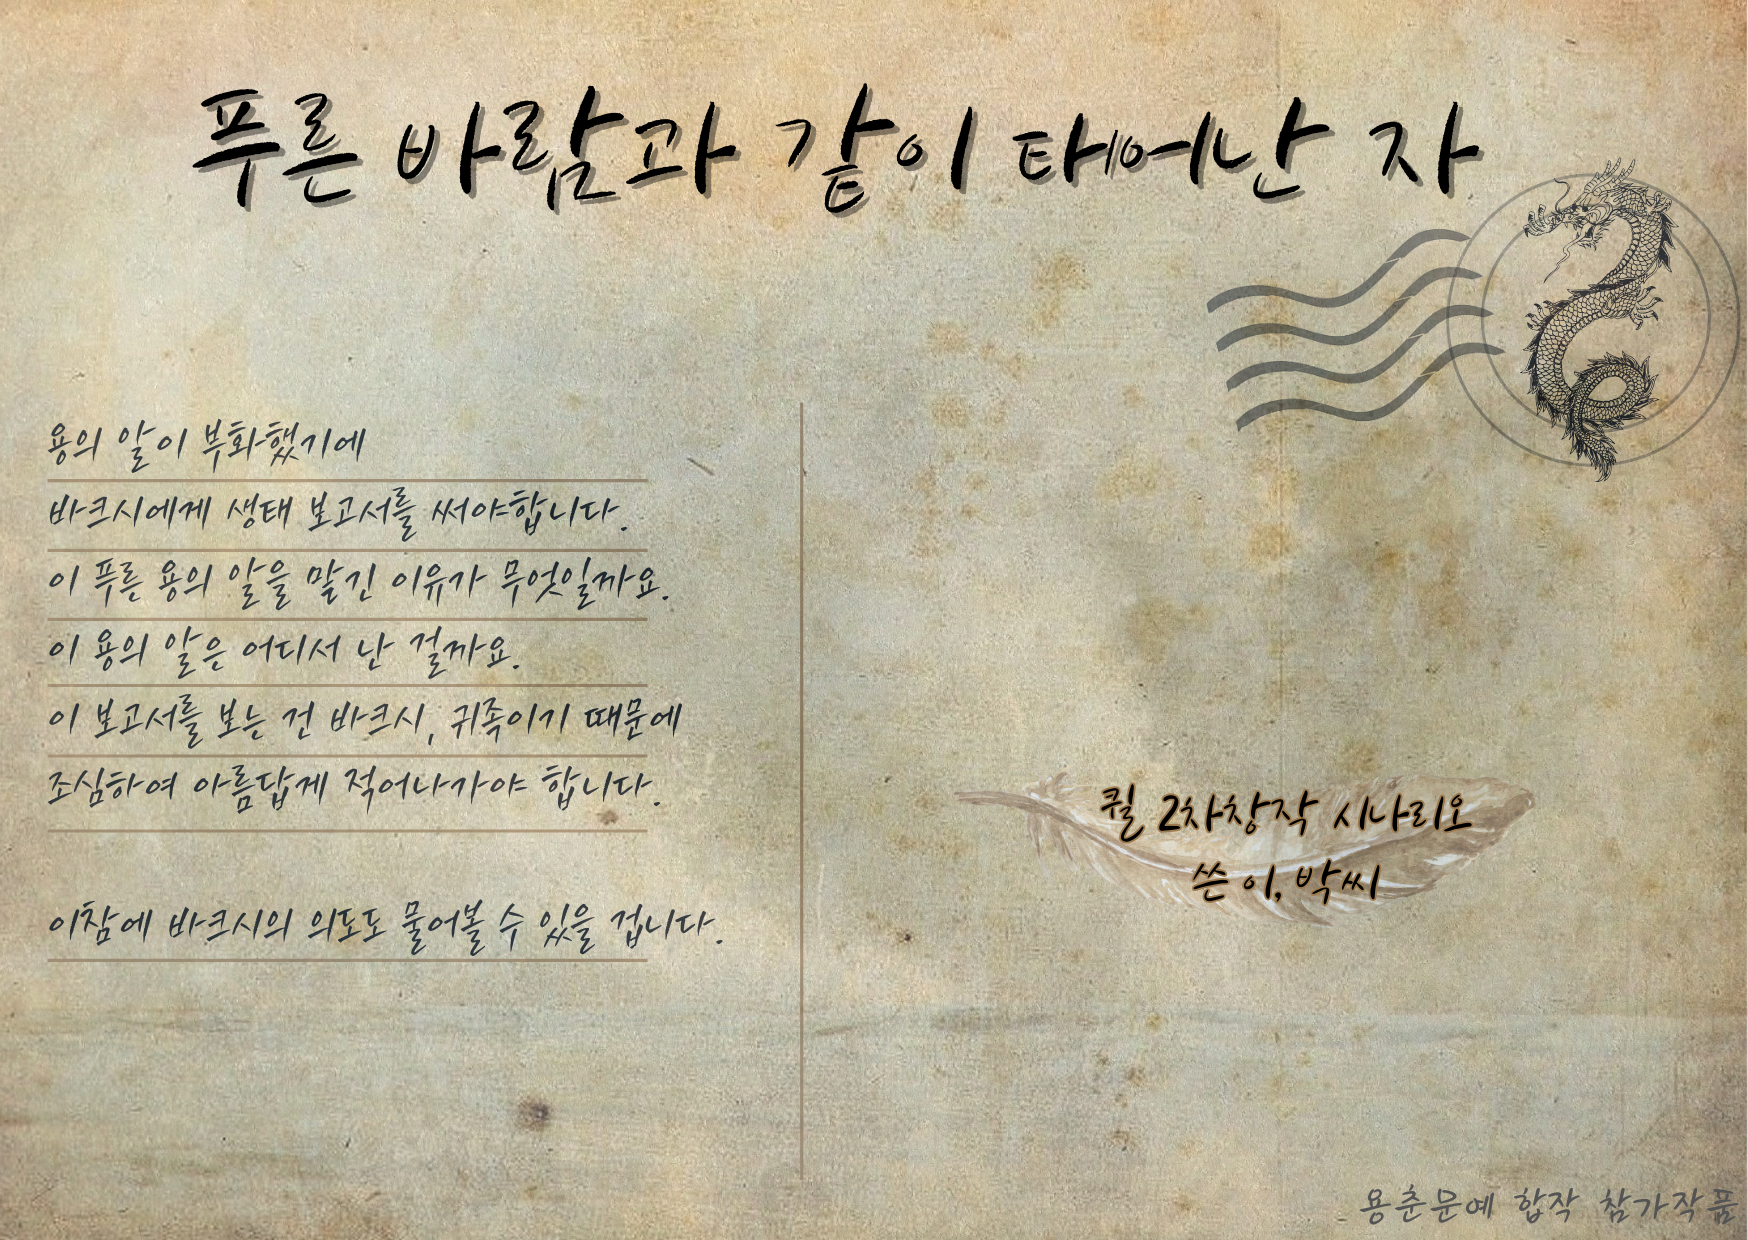 푸른 바람과 같이 태어난 자
용의 알이 부화했기에
바크시에게 생태 보고서를 써야합니다.
이 푸른 용의 알을 맡긴 이유가 무엇일까요.
이 용의 알은 어디서 난 걸까요.
이 보고서를 보는 건 바크시, 귀족이기 때문에
조심하여 아름답게 적어나가야 합니다.
이참에 바크시의 의도도 물어볼 수 있을 겁니다.
퀼 2차창작 시나리오
쓴 이, 박씨
용춘문예 합작 참가작품